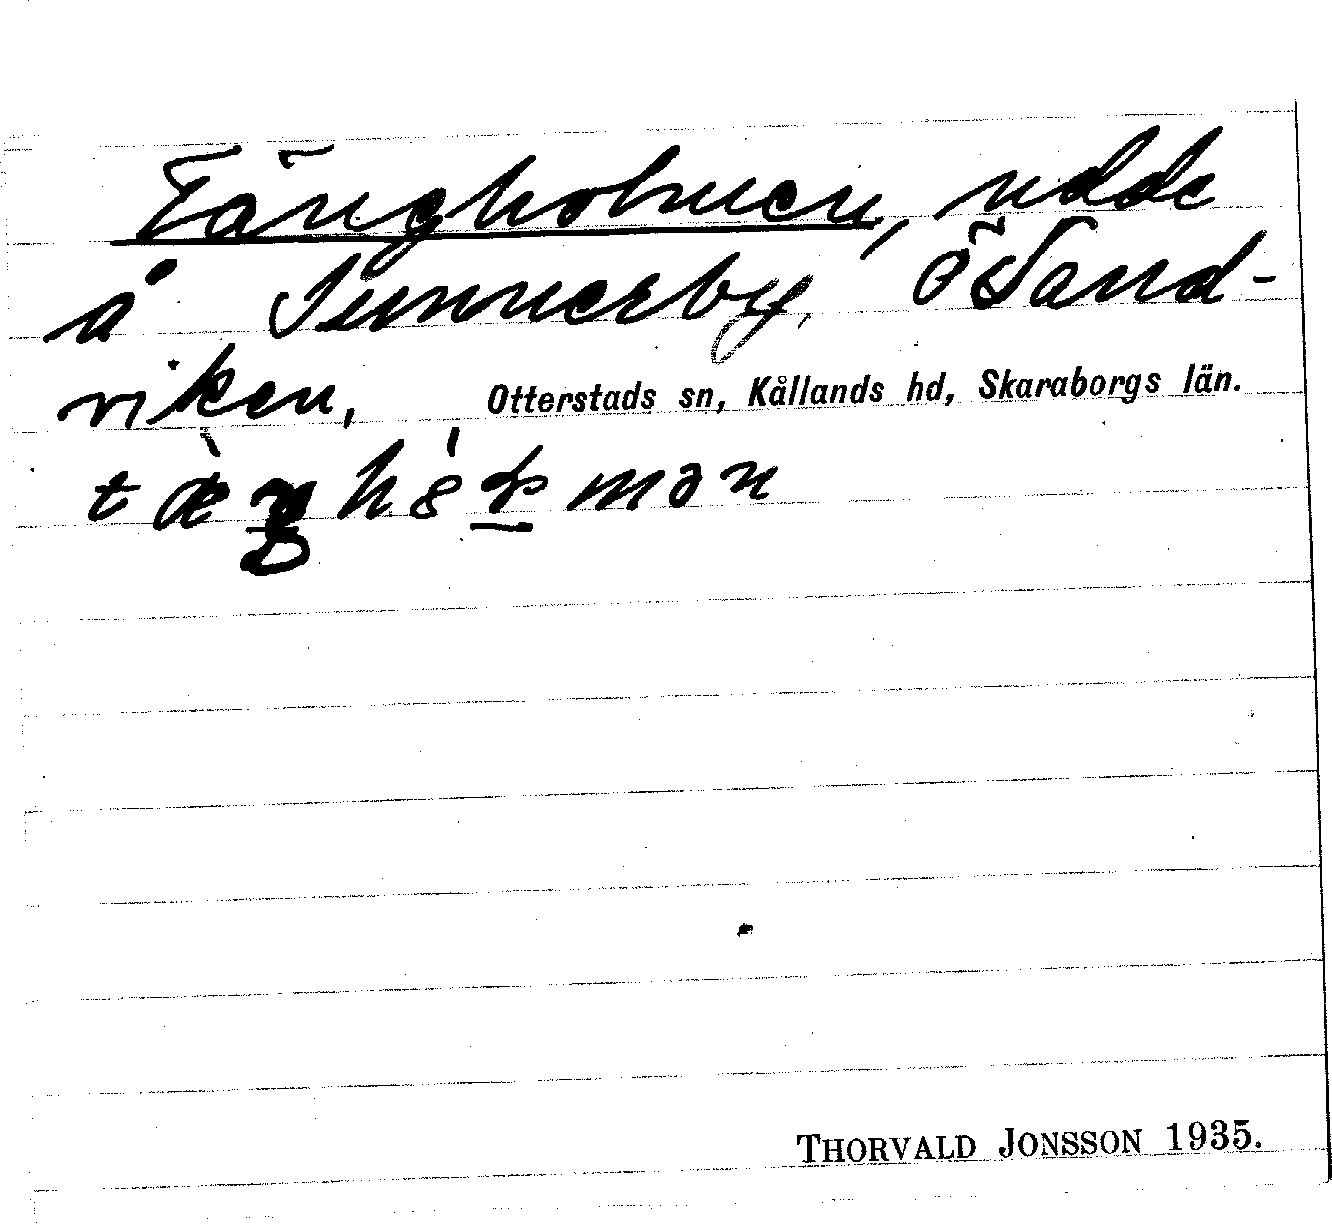 Tängholmen, udde
å Sunnerby, Ö Sand-
viken,
Otterstads sn, Kållands hd, Skaraborgs län.
THORVALD JONSSON 1935.